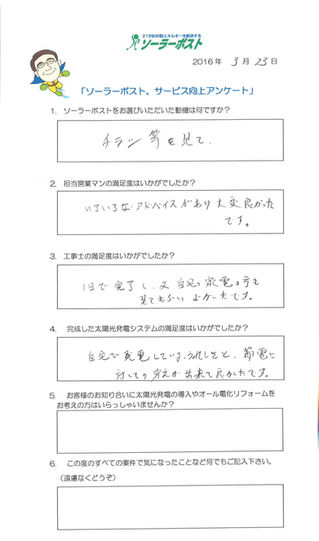 21世紀の新エネルギーを創造する
ソーラーポスト
2016年 3月 23日
「ソーラーポスト、サービス向上アンケート」
1. ソーラーポストをお選びいただいた動機は何ですか？
チラシ等を見て.
2. 担当営業マンの満足度はいかがでしたか？
いろいろなアドバイスがあり大変良かった
です。
3. 工事士の満足度はいかがでしたか？
1日で完了し、又自宅の家電の方も
見てもらい よかったです。
4. 完成した太陽光発電システムの満足度はいかがでしたか？
自宅で発電している、うれしさと、節電に
対しての考えが出来て良かったです。
5. お客様のお知り合いに太陽光発電の導入やオール電化リフォームを
お考えの方はいらっしゃいませんか？
6. この度のすべての案件で気になったことなど何でもご記入下さい。
（遠慮なくどうぞ）